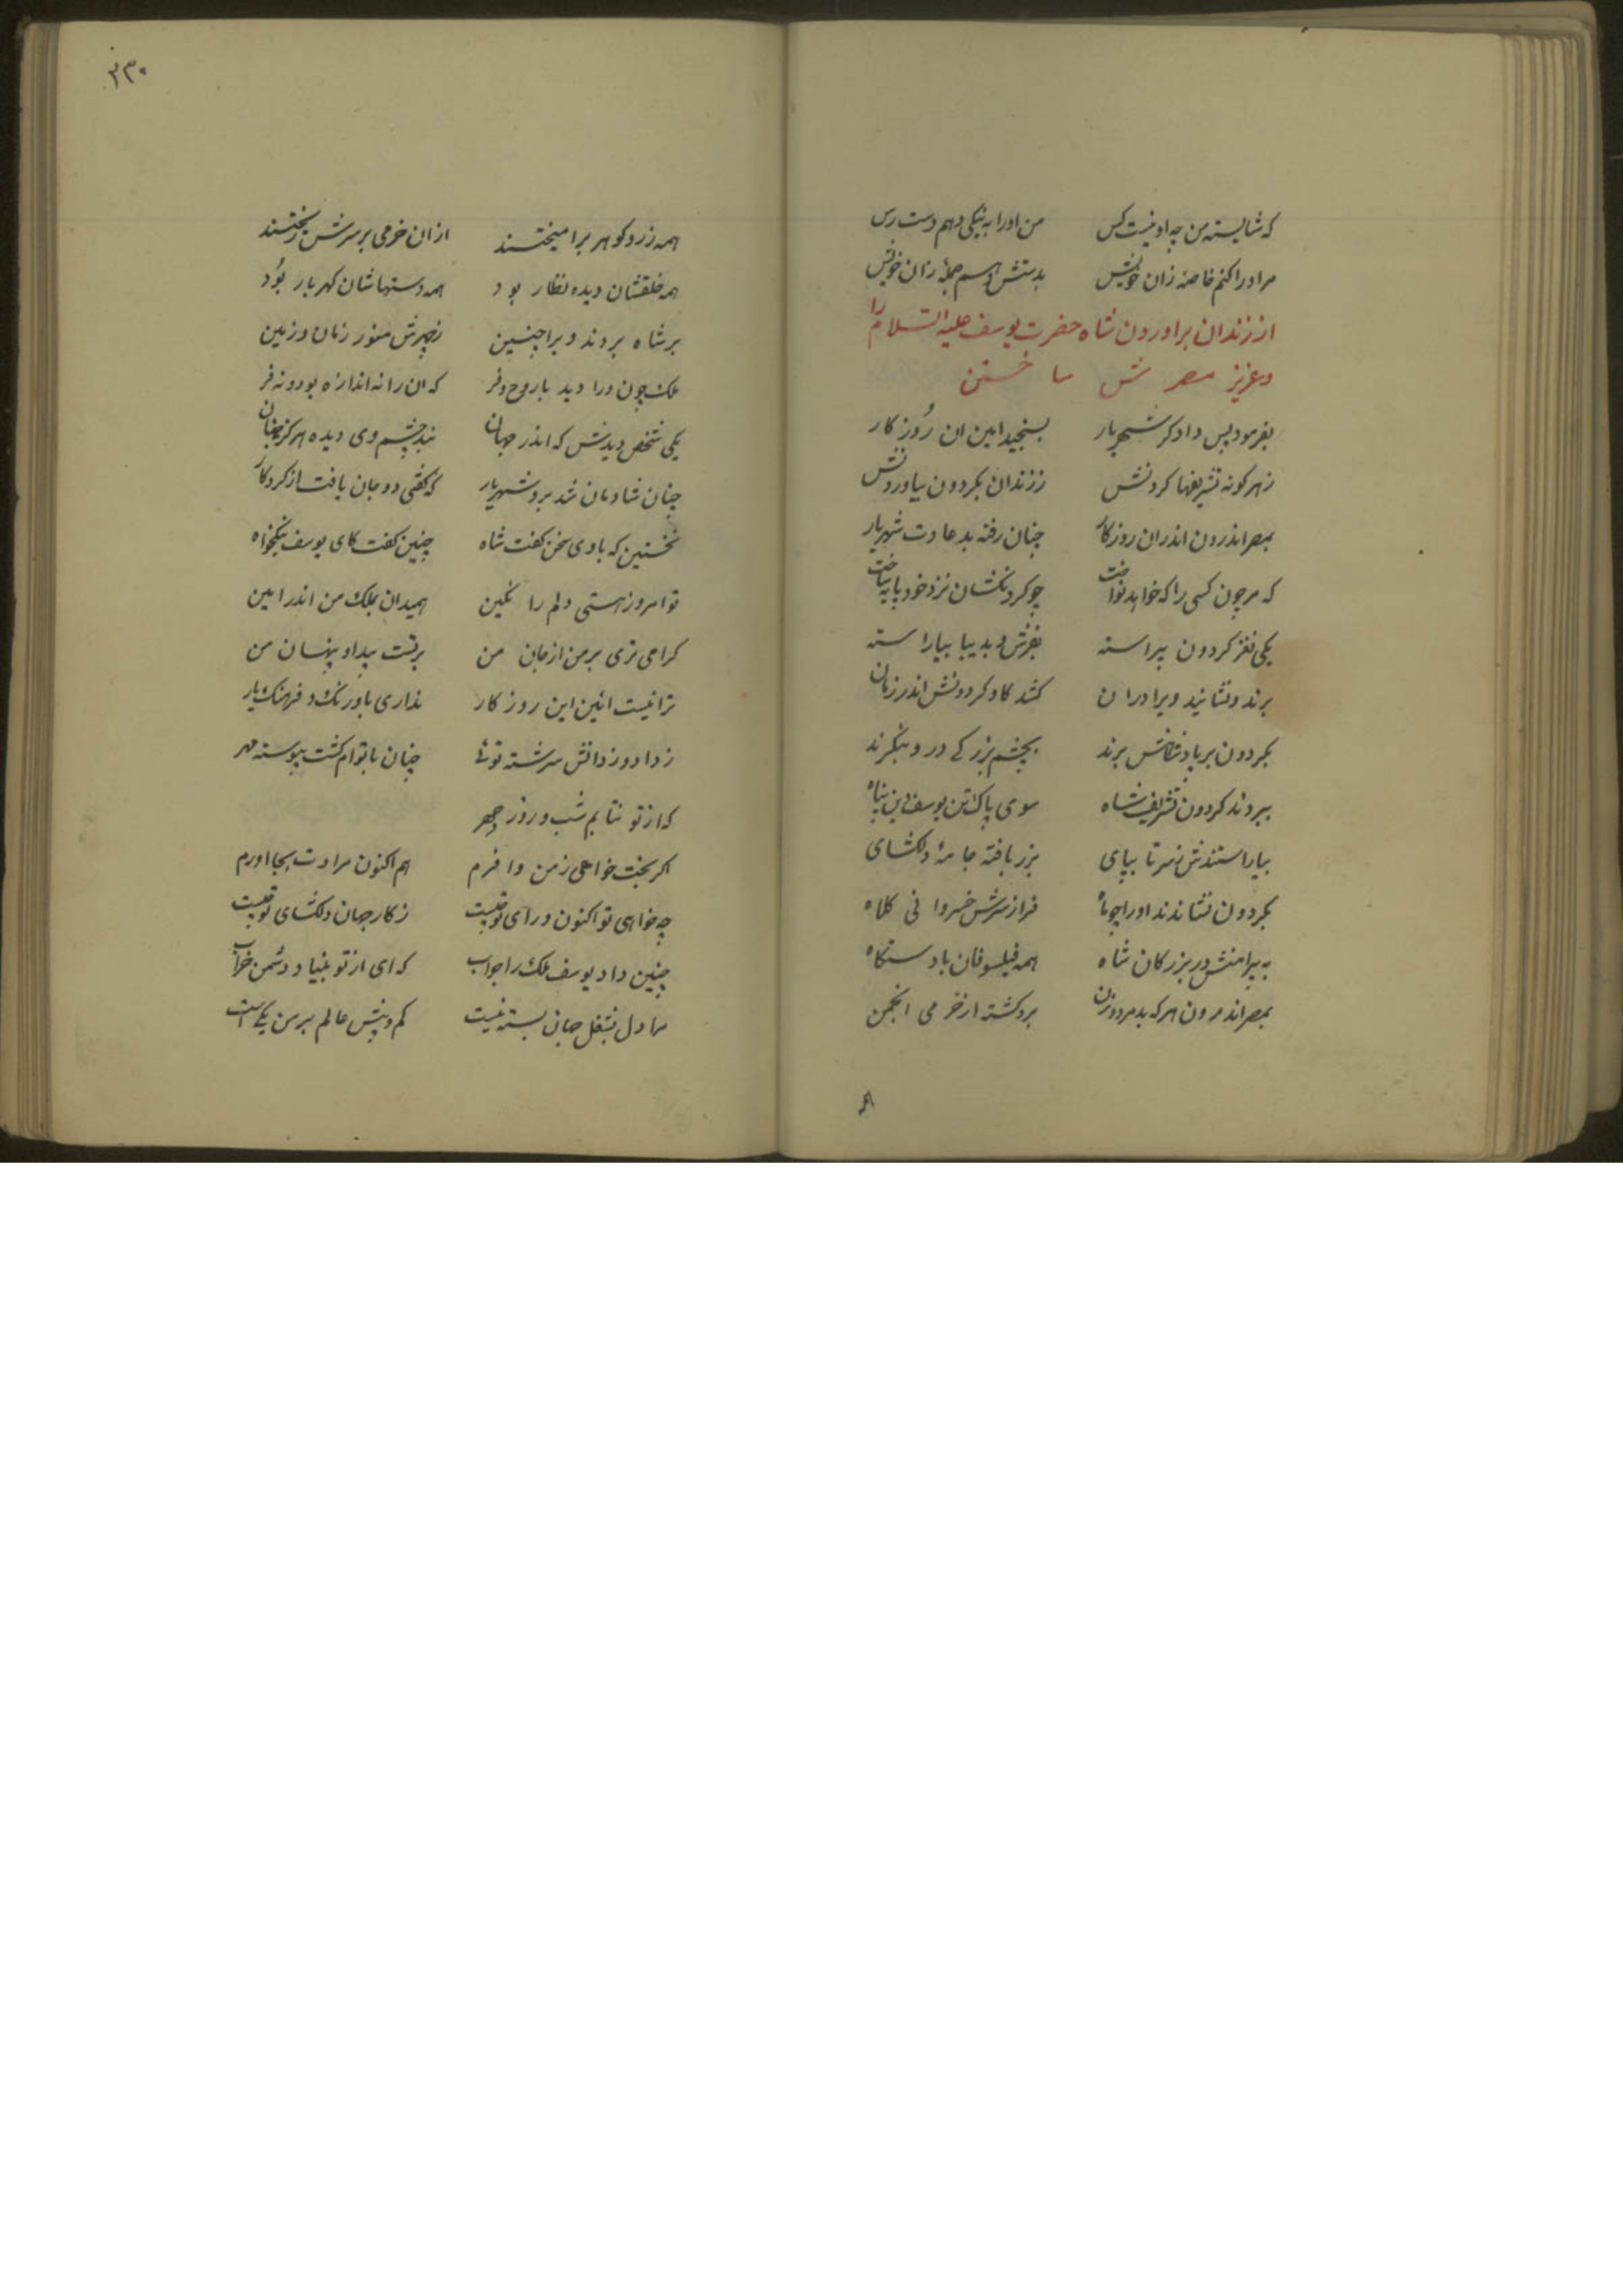 که شایسته من چه او نیست کس من او را به نیکی دهم دست رس
مر او را کنم خاصه زان خویش بدستش دهم جمله زان خویش
از زندان براوردن شاه حضرت یوسف علیه السلام را
وعزیز مصر ش سا ختن
بفرمود پس دادکر شهریار بسنجید ایین ان روزکار
زهر کونه تشریفها کردنش ززندان بکردون بیاوردنش
بمصر اندرون اندران روزکار چنان رفته بد عادت شهریار
که مر چون کسی را که خواهد نواخت چو کردنکشان نزد خود پایه ساخت
یکی نغز کردون پیراسته بفرش و بدیبا بیاراسته
برند و نشانید ویرا دران کشد کاو کردونش اندر زمان
بکردون بر پادشاهش برند بچشم بزرکے درو بنکرند
ببردند کردون تشریف شاه سوی پاک تن یوسف دین پناه
بیاراستندش ز سر تا بپای بزر بافته جامهٔ دلکشای
بکردون نشاندند او را چو ماه فراز سرش خسروانی کلاه
به پیرامنش در بزرکان شاه همه فیلسوفان با دستکاه
بمصر اندرون هر که بد مرد و زن برو کشته از خرمی انجمن
همه
۲۳۰
همه زر و کوهر برامیختند ازان خرمی بر سرش ریختند
همه خلقشان دیده نظار بود همه دستهاشان کهربار بود
بر شاه بردند ویرا چنین زچهرش منور زمان و زمین
ملک چون ورا دید با روح و فر که ان را نه اندازه بود و نه فر
یکی شخص دیدش که اندر جهان نبد چشم وی دیده هرکز چنان
چنان شادمان شد برو شهریار که کفتی دو جان یافت از کردکار
نخستین که با وی سخن کفت شاه چنین کفت کای یوسف نیکخواه
تو امروز هستی دلم را نکین همیدان بملک من اندر امین
کرامی تری بر من از جان من برتست پیدا و پنهان من
ترا نیست ائین این روزکار نداری باورنک و فرهنک یار
زداد و زدانش سرشته توئے چنان با توام کشت پیوسته مهر
که از تو نتابم شب و روز چهر
اکر بخت خواهی زمن وافرم هم اکنون مرادت بجا اورم
چه خواهی تو اکنون و رای تو چیست زکار جهان دلکشای تو چیست
چنین داد یوسف ملک را جواب که ای از تو بنیاد دشمن خراب
مرا دل بشغل جهان بسته نیست کم و بیش عالم بر من یکے است